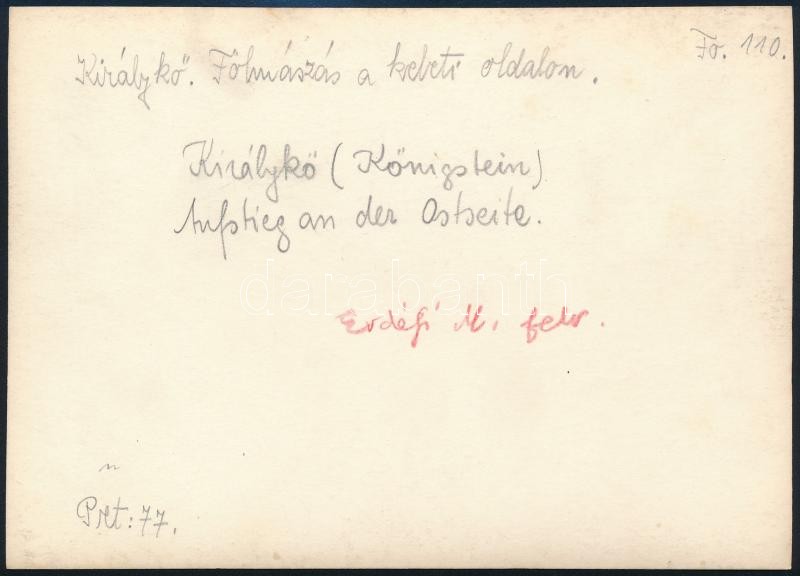 Fo. 110.
Királykő. Fölmászás a keleti oldalon.
Királykő (Königstein)
Aufstieg an der Ostseite.
darabanth
Erdélyi M. felv.
Prt: 77.